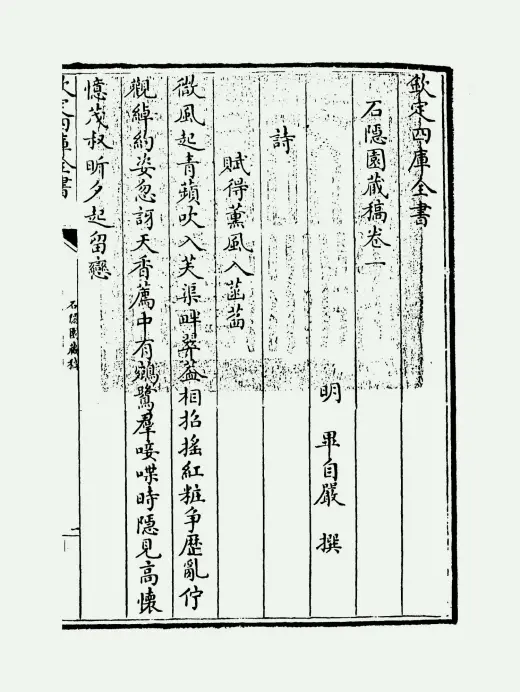 欽定四庫全書
石隱園藏稿卷一
明 畢自嚴 撰
詩
賦得薰風入菡萏
微風起青蘋吹入芙渠畔翠葢相招搖紅粧争歷亂佇
觀綽約姿忽訝天香薦中有鵁鷺羣唼喋時隱見高懷
憶茂叔昕夕起留戀
欽定四庫全書
石隱園藏稿